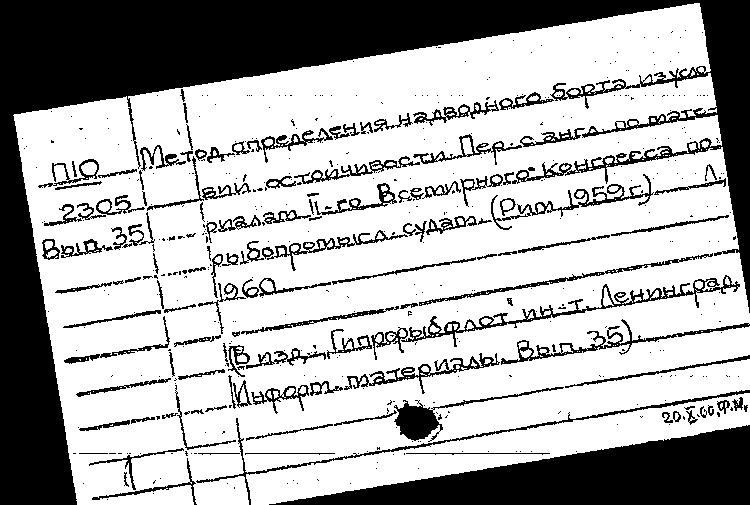 П10
2305
Вып. 35
Метод определения надводного борта из усло
вий остойчивости. Пер. с англ. по мате-
риалам II-го Всемирного Конгресса по
рыбопромысл. судам. (Рим, 1959 г.) Л.,
1960.
(В изд.: "Гипрорыбфлот", ин-т. Ленинград,
Информ. материалы. Вып. 35).
1
20.X.60. Ф.М.